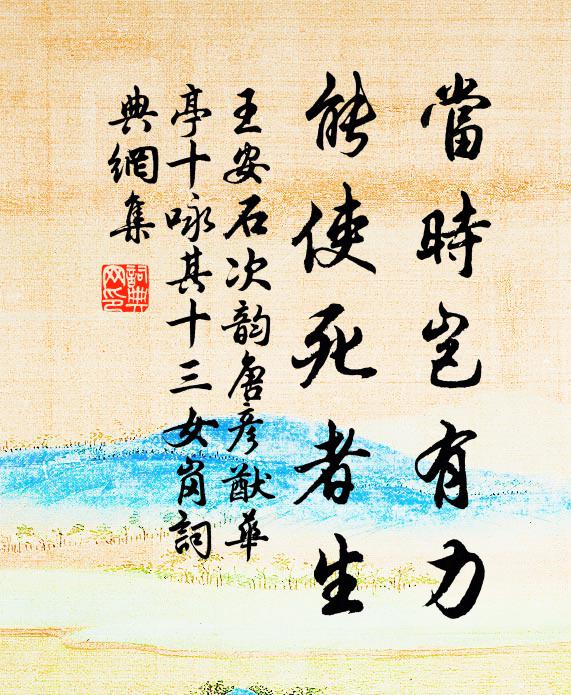 當時豈有力
能使死者生
王安石次韵唐彦猷華
亭十咏其十三女岗詞
典網集
詞典
网印